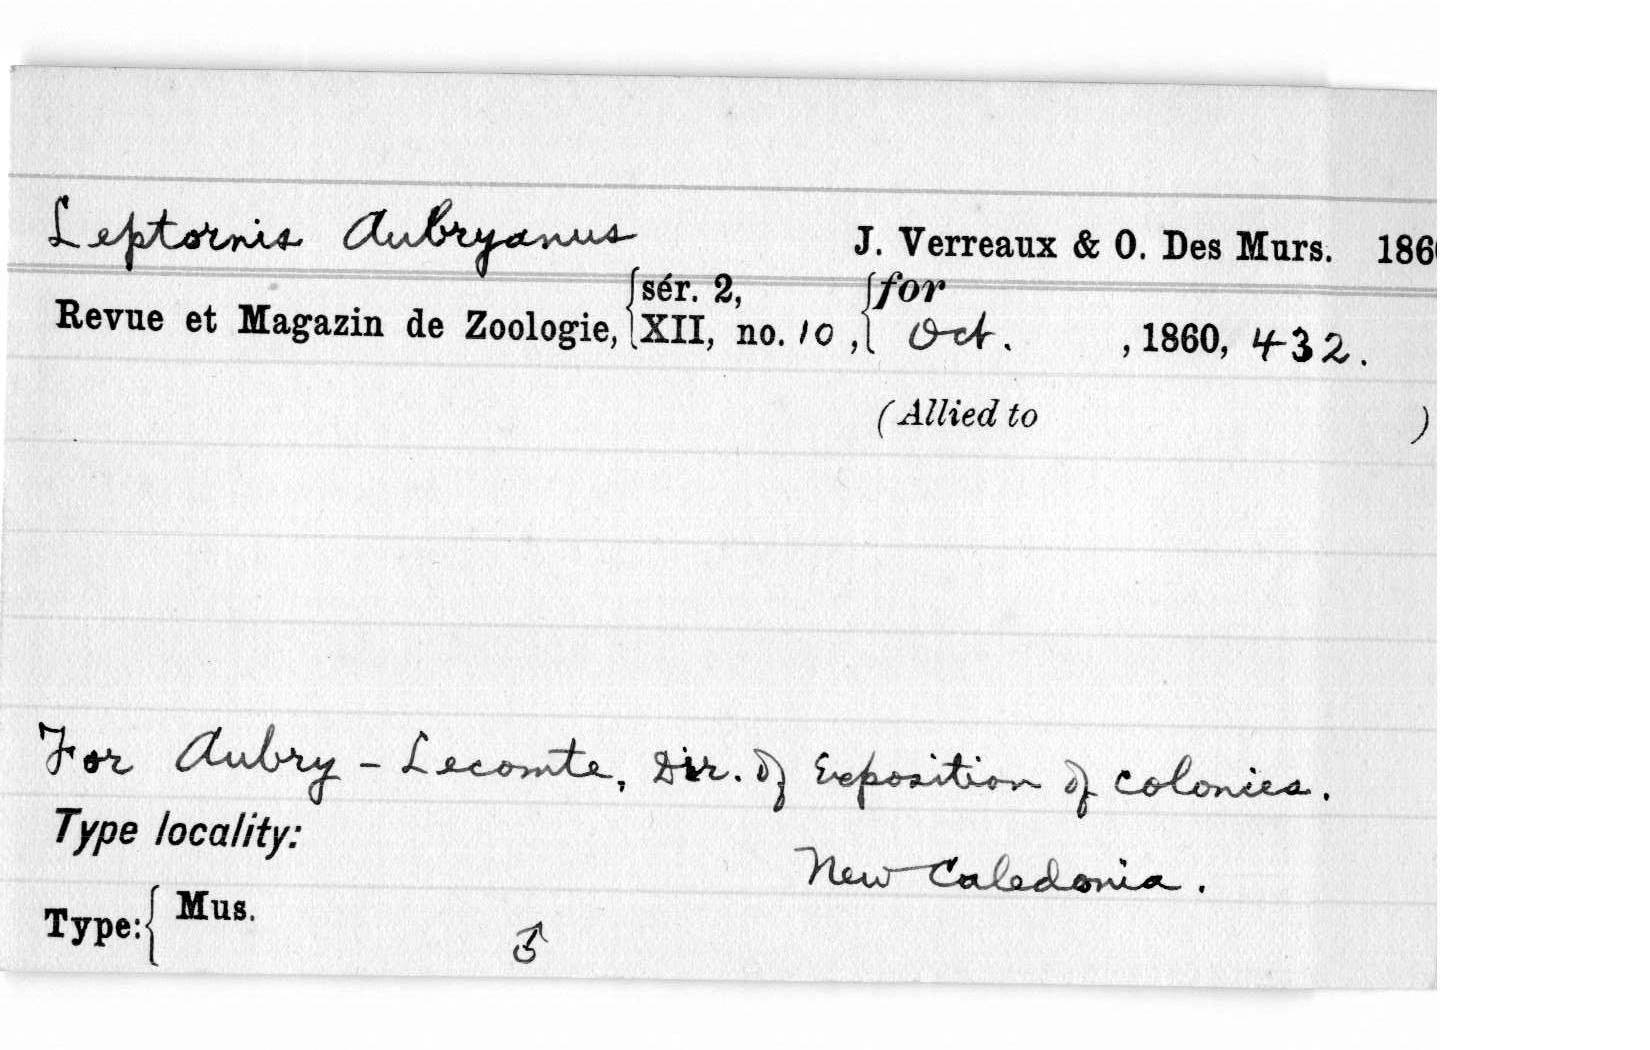 Leptornis Aubryanus J. Verreaux & O. Des Murs. 186
Revue et Magazin de Zoologie, {sér. 2, XII, no. 10, {for Oct. , 1860, 432.
(Allied to )
For Aubry-Lecomte, Dir. of Exposition of colonies.
Type locality:
New Caledonia.
Type: { Mus. ♂